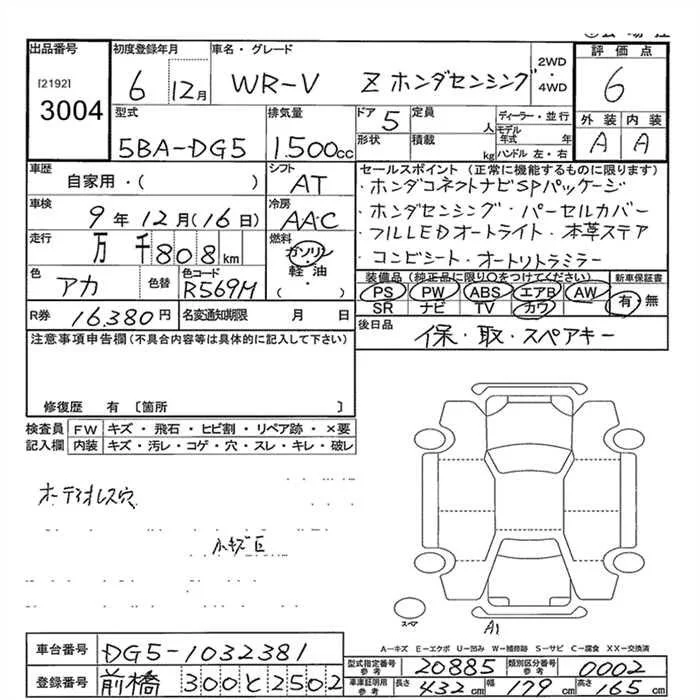 出品番号
[2192]
3004
初度登録年月
6 12月
車名・グレード
WR-V Z ホンダセンシング
2WD
・
4WD
評価点
6
外装 内装
A A
型式
5BA-DG5
排気量
1.500cc
ドア 5
形状
定員 人
積載 kg
ディーラー・並行
モデル年式 年
ハンドル 左・右
車歴
自家用・( )
シフト
AT
セールスポイント (正常に機能するものに限ります)
・ホンダコネクトナビSPパッケージ
・ホンダセンシング・パーセルカバー
・フルLEDオートライト・本革ステア
・コンビシート・オートリトラミラー
車検
9年12月(16日)
冷房
AAC
走行
万千808km
燃料
ガソリン
軽油
( )
色
アカ
色替
色コード
R569M
装備品 (純正品に限り○をつけてください)
PS PW ABS エアB AW
SR ナビ TV カワ
新車保証書
有・無
R券 16,380円
名変通知期限 月 日
後日品
保・取・スペアキー
注意事項申告欄(不具合内容等は具体的に記入して下さい)
修復歴 有 〔箇所 〕
検査員記入欄
FW キズ・飛石・ヒビ割・リペア跡・×要
内装 キズ・汚レ・コゲ・穴・スレ・キレ・破レ
オーディオレス穴
小キズ巨
スペア
A1
A-キズ E-エクボ U-凹み W-補修跡 S-サビ C-腐食 XX-交換済
車台番号 DG5-1032381
登録番号 前橋 300 と 2502
型式指定番号 参考 20885
類別区分番号 参考 0002
車庫証明用 参考 長さ 432cm 幅 179cm 高さ 165cm